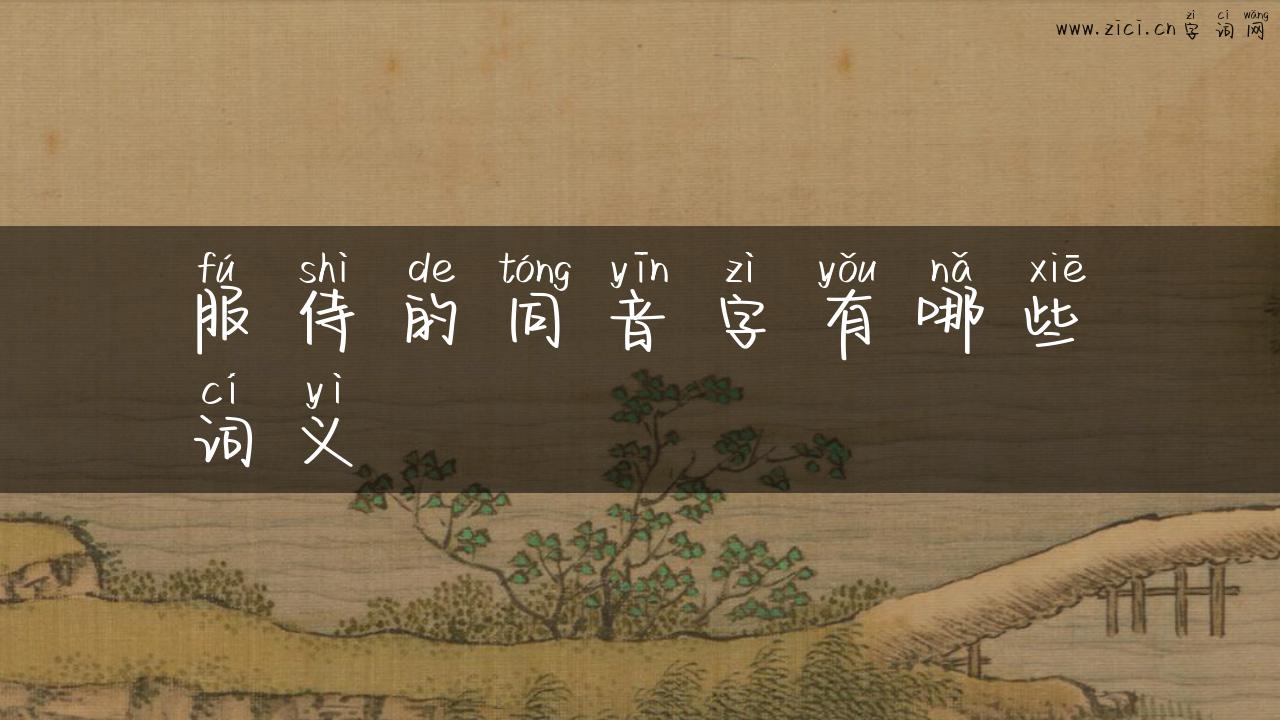 zì cí wǎng
www.zici.cn 字词网
fú shì de tóng yīn zì yǒu nǎ xiē
服侍的同音字有哪些
cí yì
词义